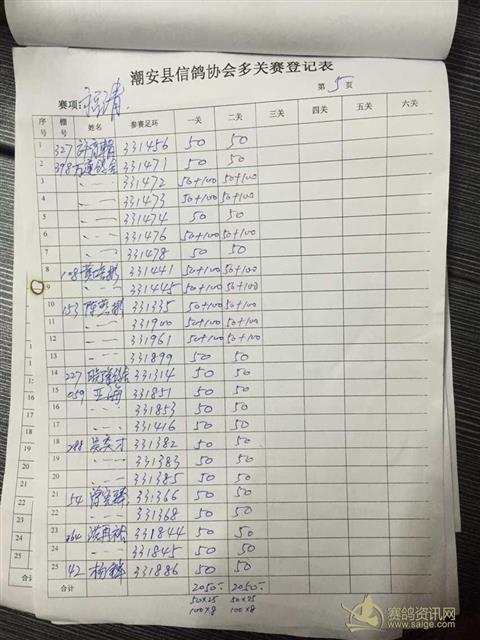 潮安县信鸽协会多关赛登记表
赛项: 福清 第 5 页
序号 棚号 姓名 参赛足环 一关 二关 三关 四关 五关 六关
1 327 331456 50 50
2 398 331471 50 50
3 〃 331472 50+100 50+100
4 〃 331473 50+100 50+100
5 〃 331474 50 50
6 〃 331476 50+100 50+100
7 〃 331478 50 50
8 108 331441 50+100 50+100
9 〃 331445 50+100 50+100
10 153 331335 50+100 50+100
11 〃 331900 50+100 50+100
12 〃 331961 50+100 50+100
13 〃 331899 50 50
14 227 331314 50 50
15 059 331851 50 50
16 〃 331853 50 50
17 〃 331416 50 50
18 288 吴英才 331382 50 50
19 〃 331383 50 50
20 〃 331385 50 50
21 54 331366 50 50
22 〃 331368 50 50
23 264 331844 50 50
24 〃 331845 50 50
25 42 杨 331886 50 50
合计 2050- 2050-
50×25 50×25
100×8 100×8
赛鸽资讯网
www.saige.com